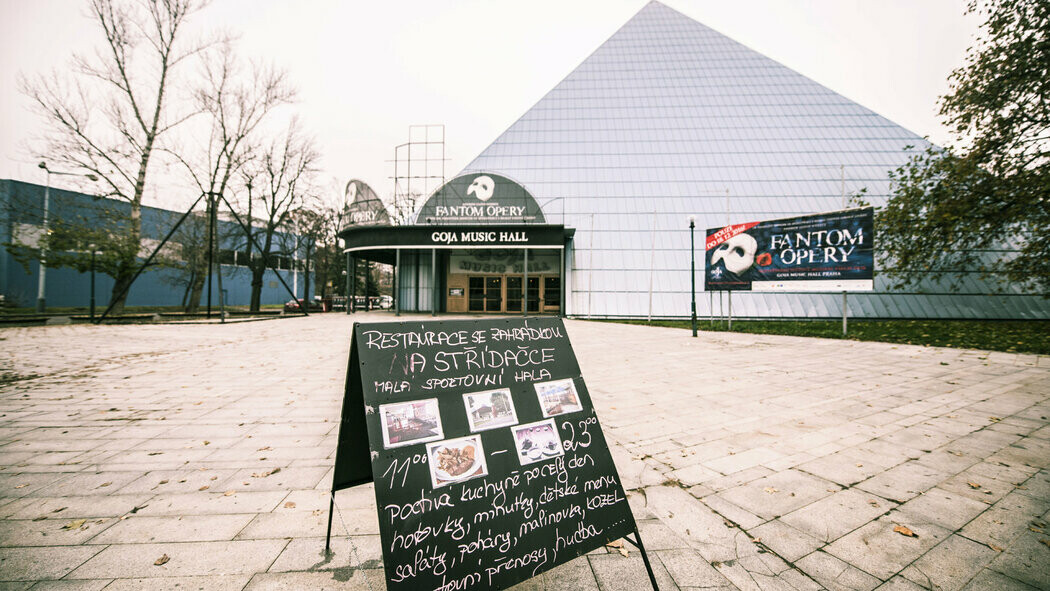 FANTOM OPERY
GOJA MUSIC HALL
MUSIC HALL
OPERY
POUZE
FANTOM
OPERY
GOJA MUSIC HALL PRAHA
RESTAURACE SE ZAHRÁDKOU
NA STŘÍDAČCE
MALÁ SPORTOVNÍ HALA
11⁰⁰ – 23⁰⁰
Poctivá kuchyně po celý den
hotovky, minutky, dětské menu
saláty, poháry, malinovka, KOZEL
přenosy, hudba ....